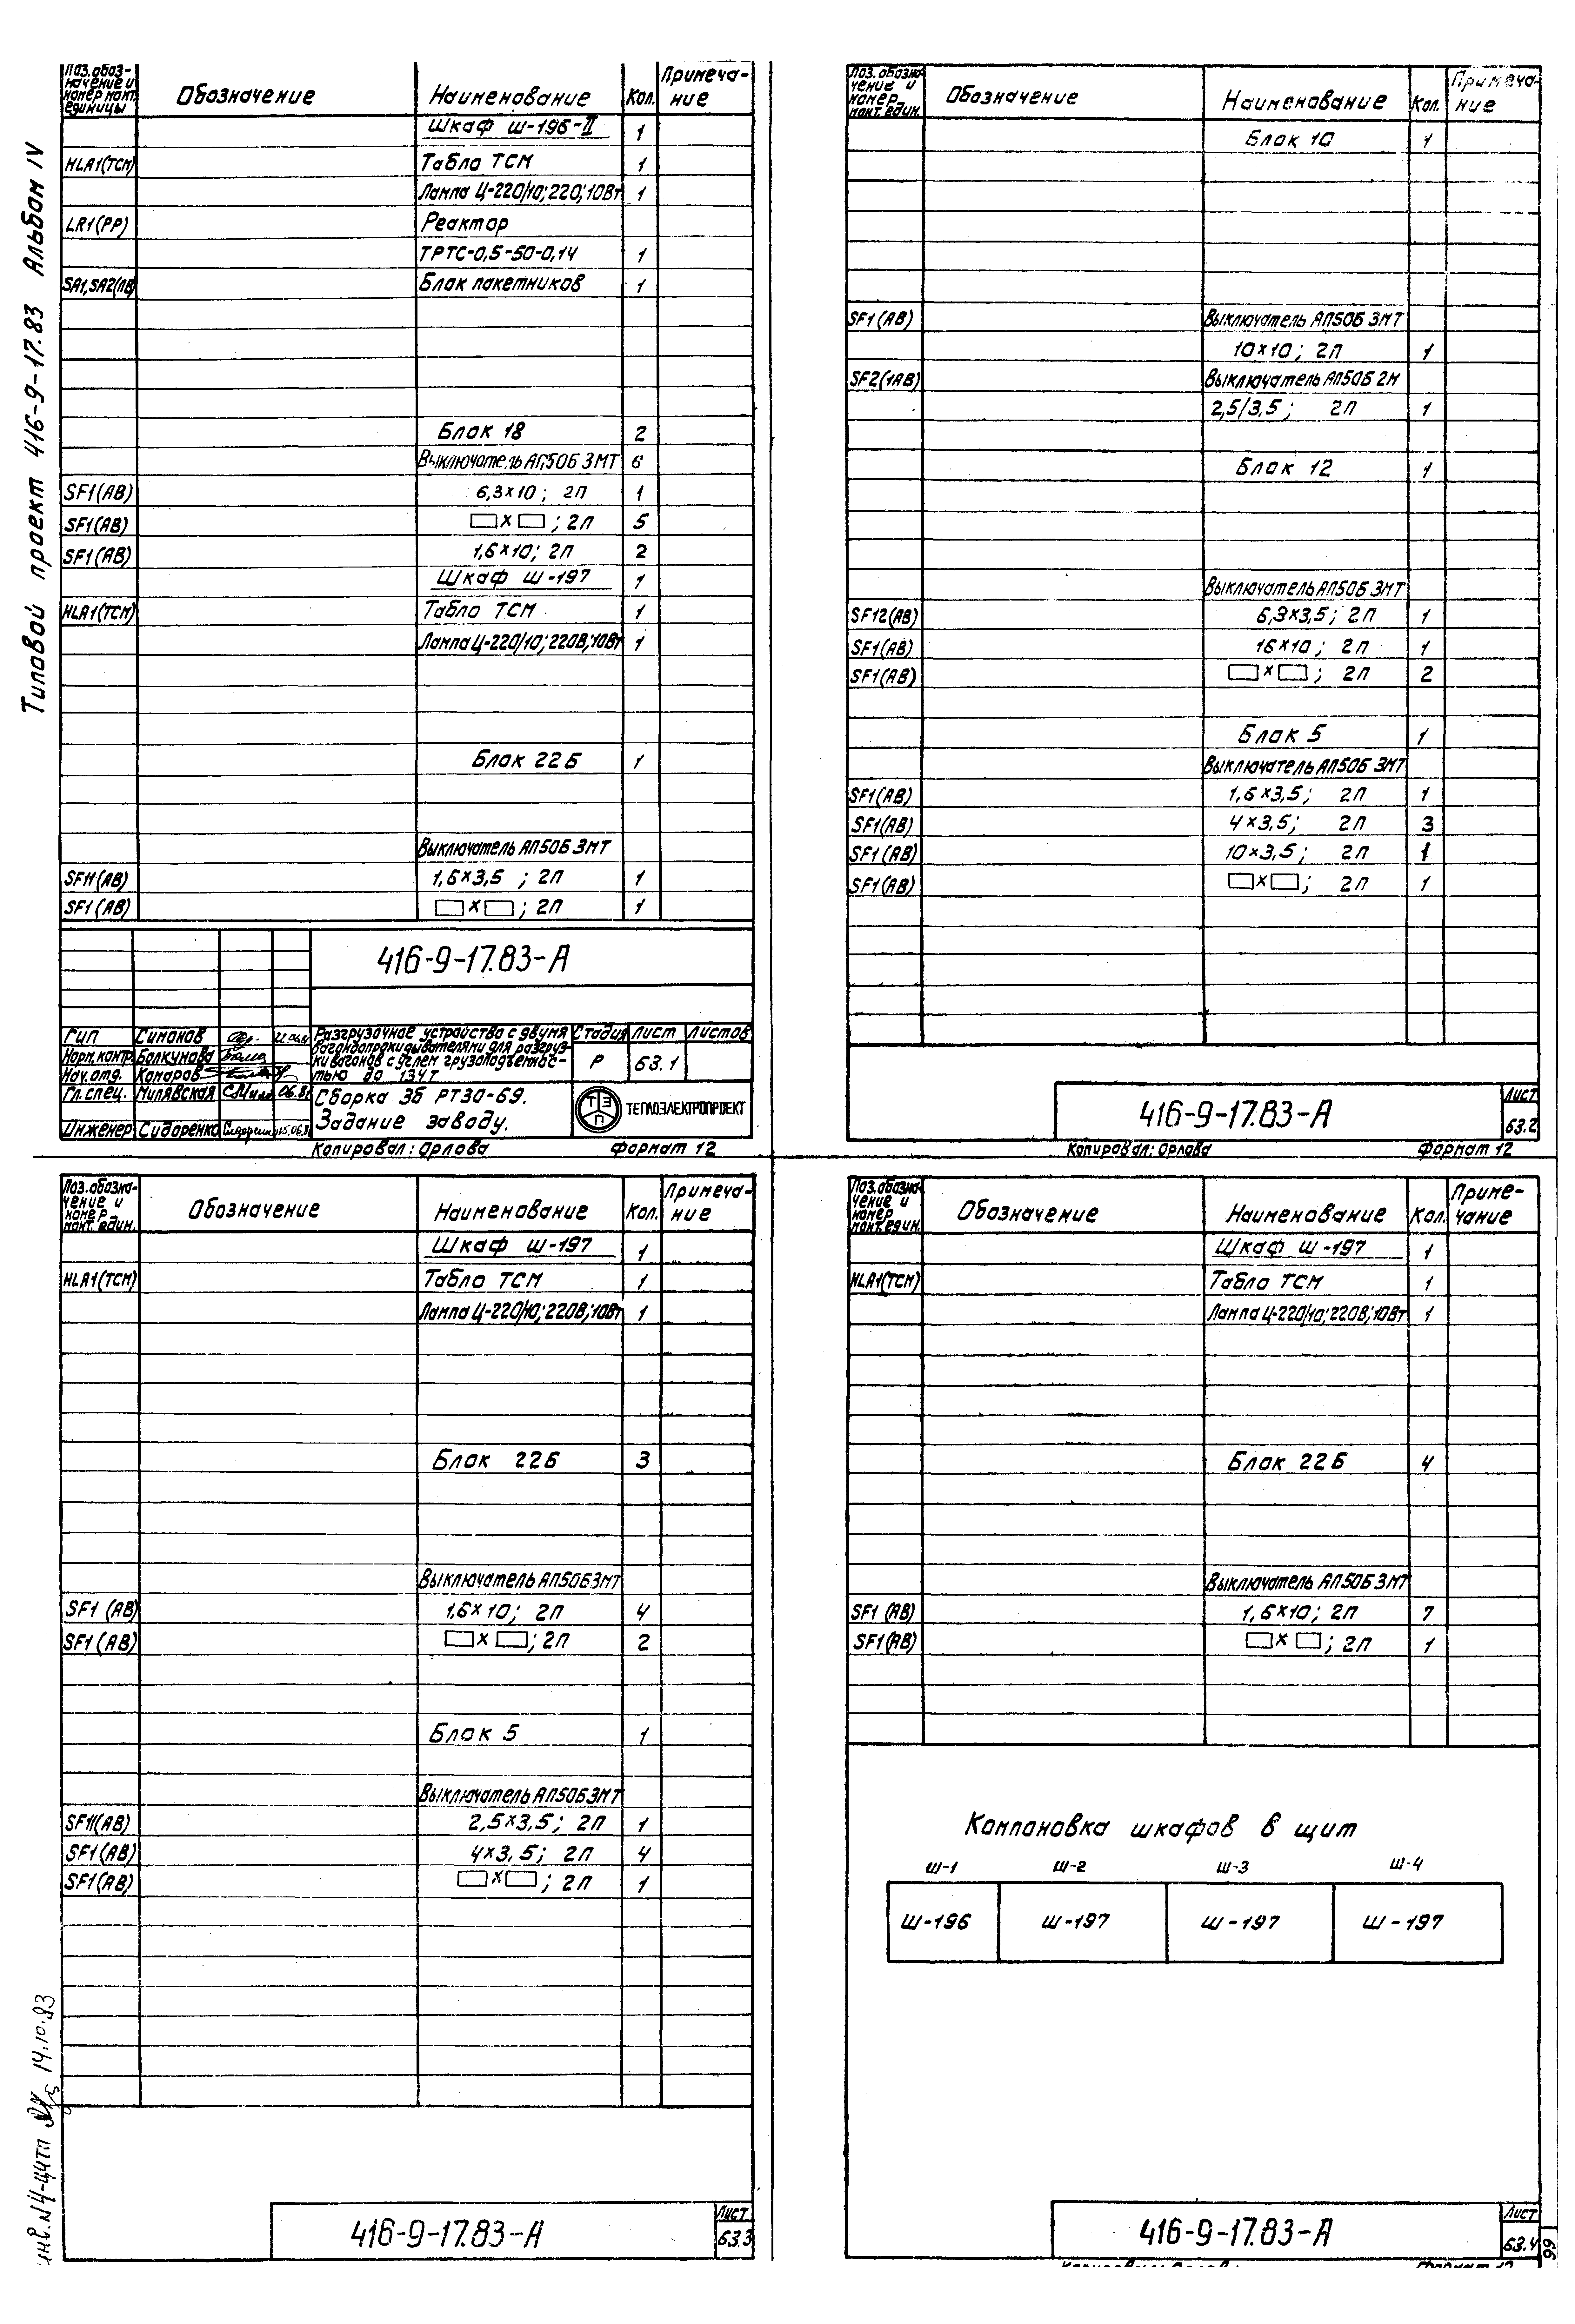 Типовой проект 416-9-17.83 Альбом IV
Поз. обоз-
начение и
номер монт.
единицы
Обозначение
Наименование
Кол.
Примеча-
ние
Шкаф Ш-196-II 1
HLA1(ТСМ) Табло ТСМ 1
Лампа Ц-220/10; 220; 10Вт 1
LR1(РР) Реактор
ТРТС-0,5-50-0,14 1
SA1, SA2(ПВ) Блок пакетников 1
Блок 18 2
Выключатель АП50Б 3МТ 6
SF1(АВ) 6,3×10; 2П 1
SF1(АВ) □×□; 2П 5
SF1(АВ) 1,6×10; 2П 2
Шкаф Ш-197 1
HLA1(ТСМ) Табло ТСМ 1
Лампа Ц-220/10; 220В; 10Вт 1
Блок 22Б 1
Выключатель АП50Б 3МТ
SF11(АВ) 1,6×3,5; 2П 1
SF1(АВ) □×□; 2П 1
416-9-17.83-А
ГИП Симонов
Норм.контр. Балкунова
Нач.отд. Комаров
Гл.спец. Милявская 06.8
Инженер Сидоренко
Разгрузочное устройства с двумя
вагоноопрокидывателями для разгруз-
ки вагонов с углем грузоподъемнос-
тью до 134т
Стадия Лист Листов
Р 63.1
Сборка ЗБ РТ30-69.
Задание заводу.
ТЭП
ТЕПЛОЭЛЕКТРОПРОЕКТ
Копировал: Орлова Формат 12
Поз. обозна-
чение и
номер
монт. един.
Обозначение
Наименование
Кол.
Примеча-
ние
Блок 10 1
SF1(АВ) Выключатель АП50Б 3МТ
10×10; 2П 1
SF2(1АВ) Выключатель АП50Б 2М
2,5/3,5; 2П 1
Блок 12 1
Выключатель АП50Б 3МТ
SF12(АВ) 6,3×3,5; 2П 1
SF1(АВ) 16×10; 2П 1
SF1(АВ) □×□; 2П 2
Блок 5 1
Выключатель АП50Б 3МТ
SF1(АВ) 1,6×3,5; 2П 1
SF1(АВ) 4×3,5; 2П 3
SF1(АВ) 10×3,5; 2П 1
SF1(АВ) □×□; 2П 1
416-9-17.83-А
Лист
63.2
Копировал: Орлова Формат 12
Поз. обозна-
чение и
номер
монт. един.
Обозначение
Наименование
Кол.
Примеча-
ние
Шкаф Ш-197 1
HLA1(ТСМ) Табло ТСМ 1
Лампа Ц-220/10; 220В; 10Вт 1
Блок 22Б 3
Выключатель АП50Б 3МТ
SF1 (АВ) 1,6×10; 2П 4
SF1 (АВ) □×□; 2П 2
Блок 5 1
Выключатель АП50Б 3МТ
SF11(АВ) 2,5×3,5; 2П 1
SF1(АВ) 4×3,5; 2П 4
SF1(АВ) □×□; 2П 1
416-9-17.83-А
Лист
63.3
Инв. № 4-цитп 14.10.83
Поз. обозна-
чение и
номер
монт. един.
Обозначение
Наименование
Кол.
Приме-
чание
Шкаф Ш-197 1
HLA1(ТСМ) Табло ТСМ 1
Лампа Ц-220/10; 220В; 10Вт 1
Блок 22Б 4
Выключатель АП50Б 3МТ
SF1 (АВ) 1,6×10; 2П 7
SF1(АВ) □×□; 2П 1
Компоновка шкафов в щит
Ш-1 Ш-2 Ш-3 Ш-4
Ш-196 Ш-197 Ш-197 Ш-197
416-9-17.83-А
Лист
63.4
66